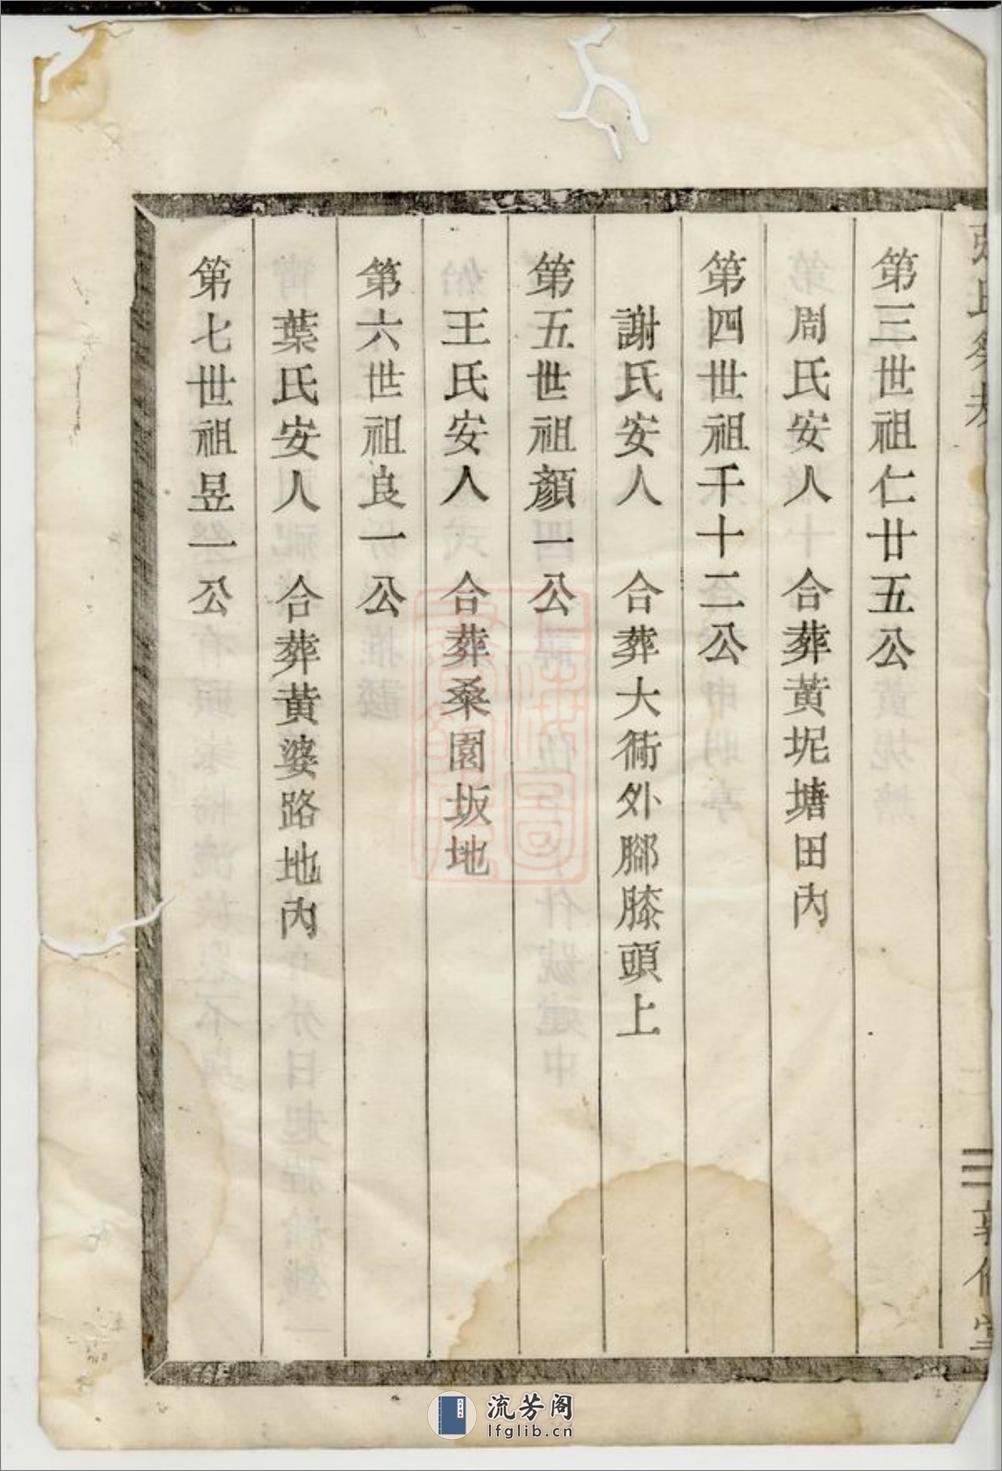 第三世祖仁廿五公
周氏安人　合葬黃坭塘田內
第四世祖千十二公
謝氏安人　合葬大衕外腳膝頭上
第五世祖顏一公
王氏安人　合葬桑園坂地
第六世祖良一公
葉氏安人　合葬黃婆路地內
第七世祖昱一公
流芳阁
lfglib.cn